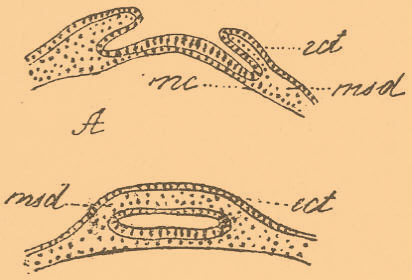 ect
mc msd
A
msd ect